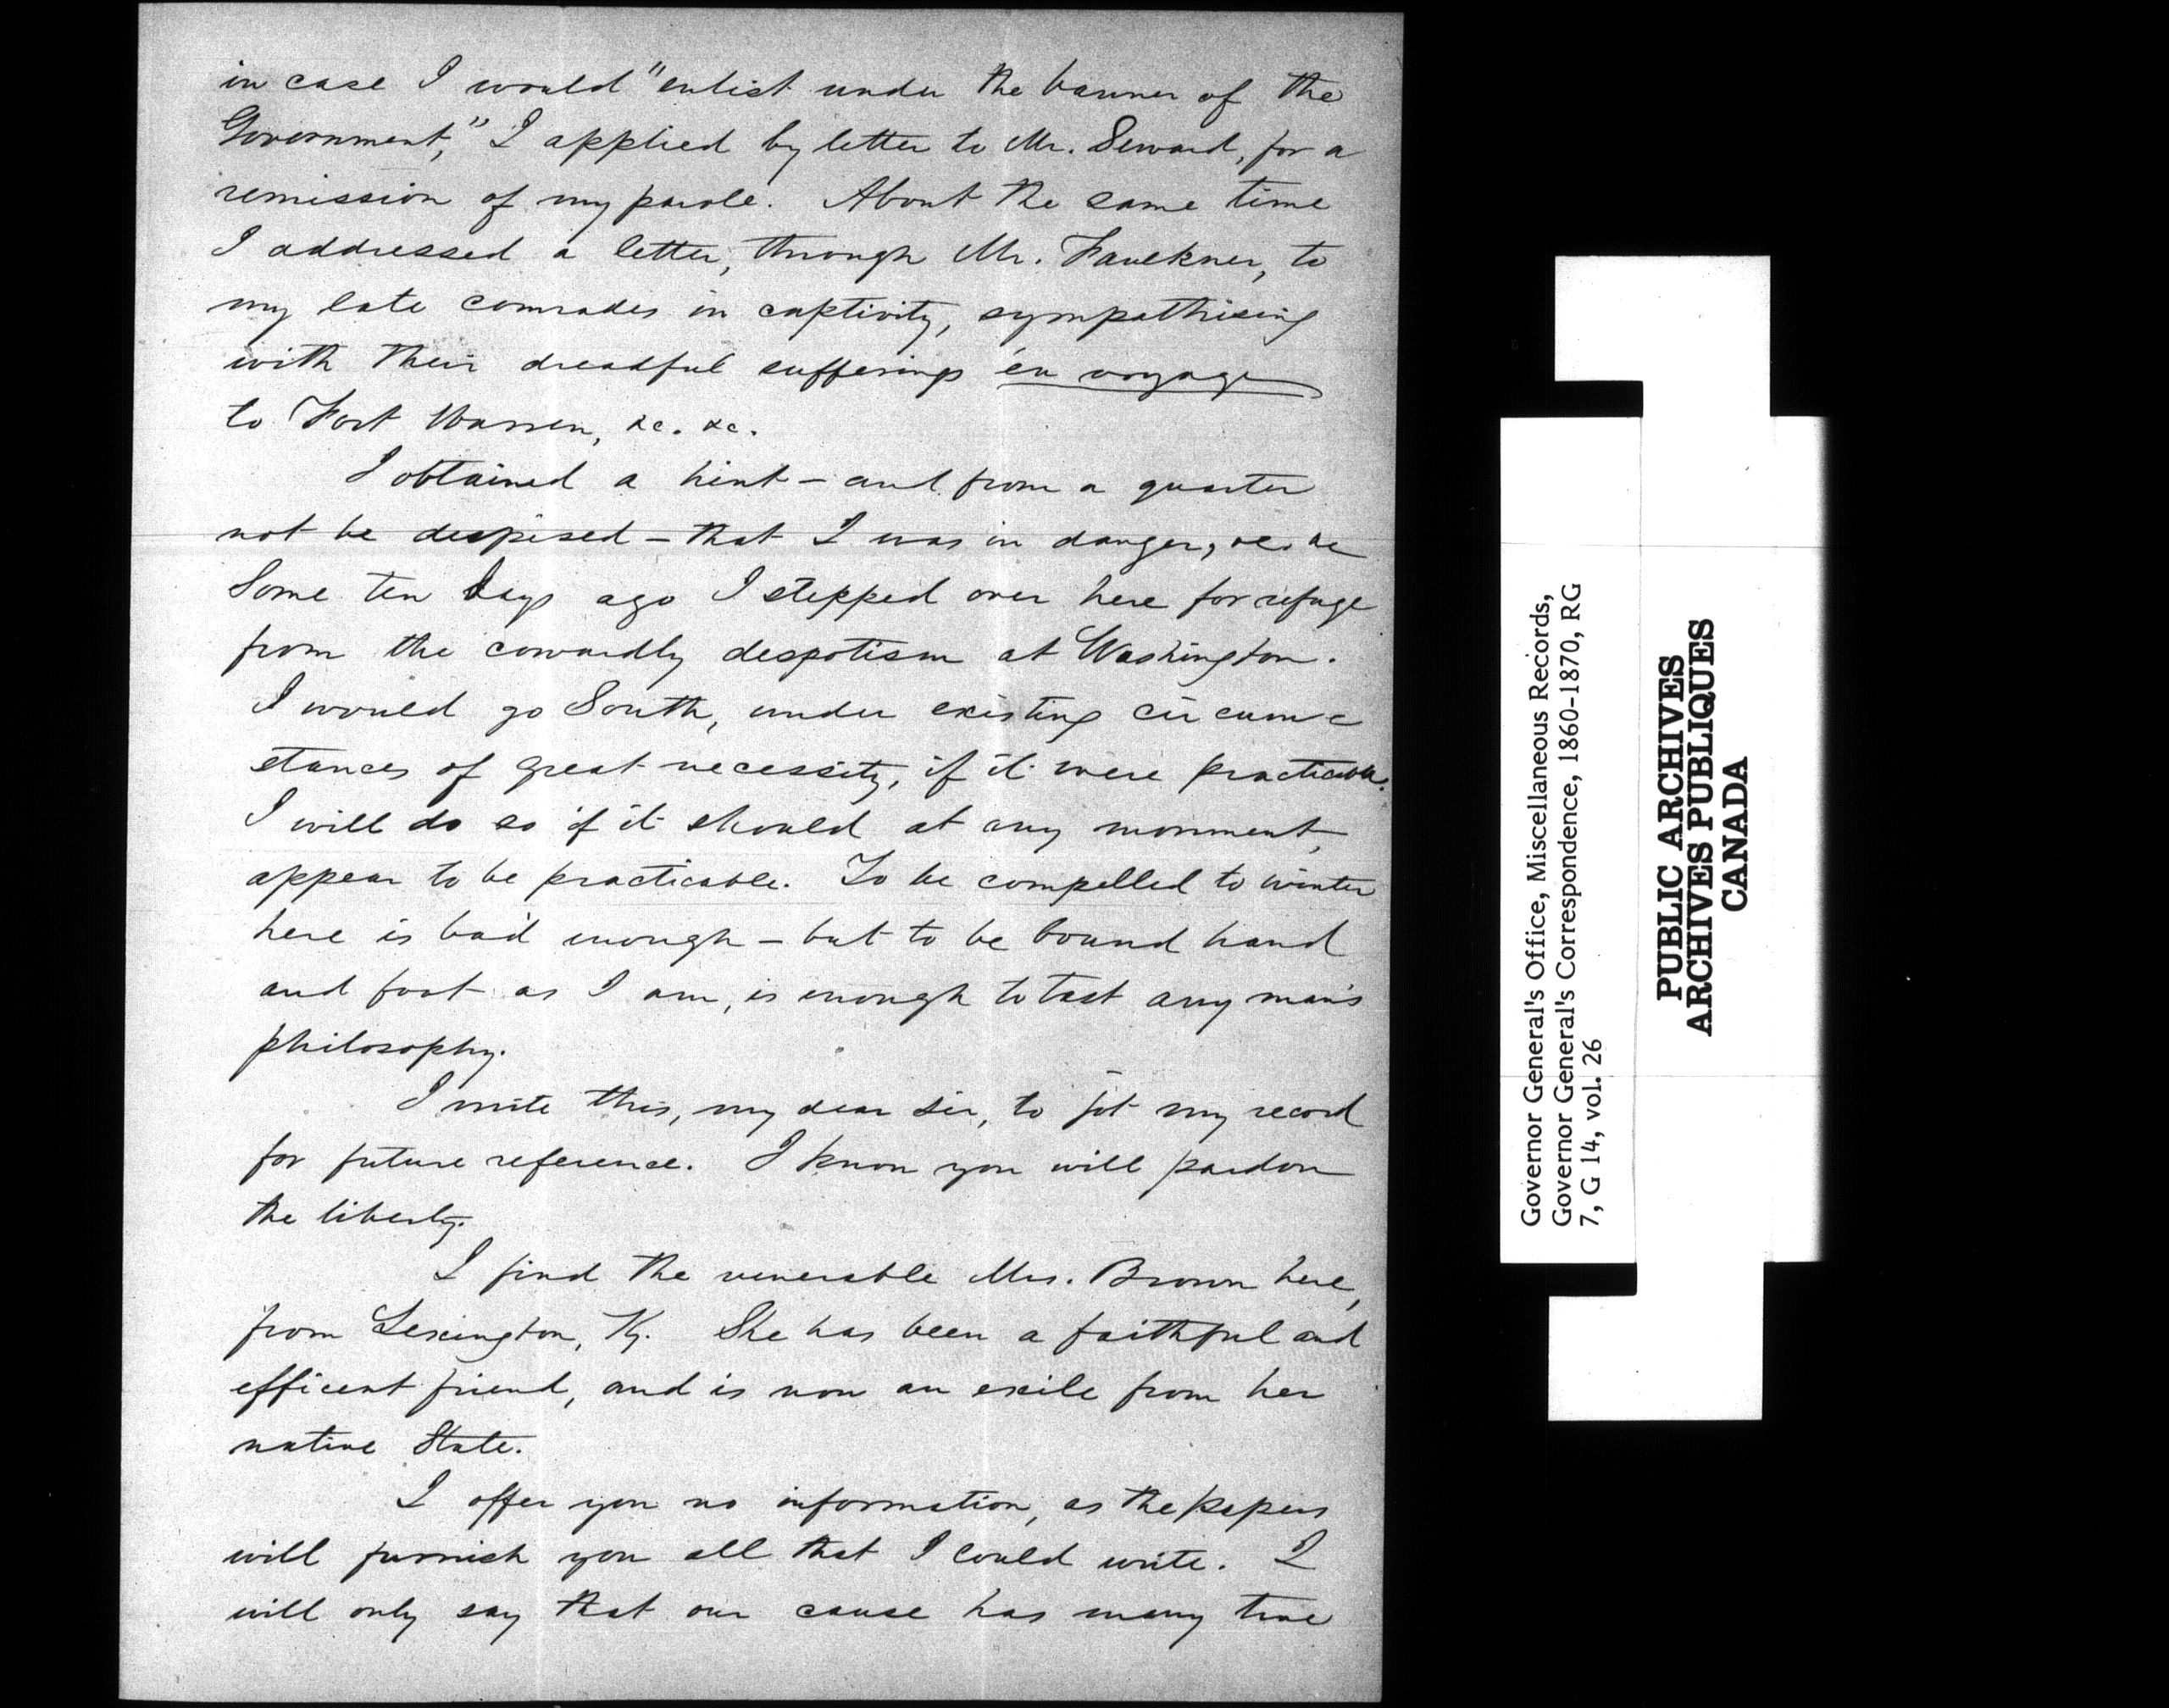 in case I would "enlist under the banner of the
Government," I applied by letter to Mr. Seward, for a
remission of my parole. About the same time
I addressed a letter, through Mr. Faulkner, to
my late comrades in captivity, sympathising
with their dreadful sufferings en voyage
to Fort Warren, &c. &c.
I obtained a hint – and from a quarter
not be despised – that I was in danger, &c. &c
Some ten days ago I stepped over here for refuge
from the cowardly despotism at Washington.
I would go South, under existing circum-
stances of great necessity, if it were practicable.
I will do so if it should at any monment,
appear to be practicable. To be compelled to winter
here is bad enough – but to be bound hand
and foot as I am, is enough to test any man's
philosophy.
I write this, my dear Sir, to jot my record
for future reference. I know you will pardon
the liberty.
I find the venerable Mrs. Brown here,
from Lexington, Ky. She has been a faithful and
efficent friend, and is now an exile from her
native State.
I offer you no information, as the papers
will furnish you all that I could write. I
will only say that our cause has many true
Governor General's Office, Miscellaneous Records,
Governor General's Correspondence, 1860-1870, RG
7, G 14, vol. 26
PUBLIC ARCHIVES
ARCHIVES PUBLIQUES
CANADA